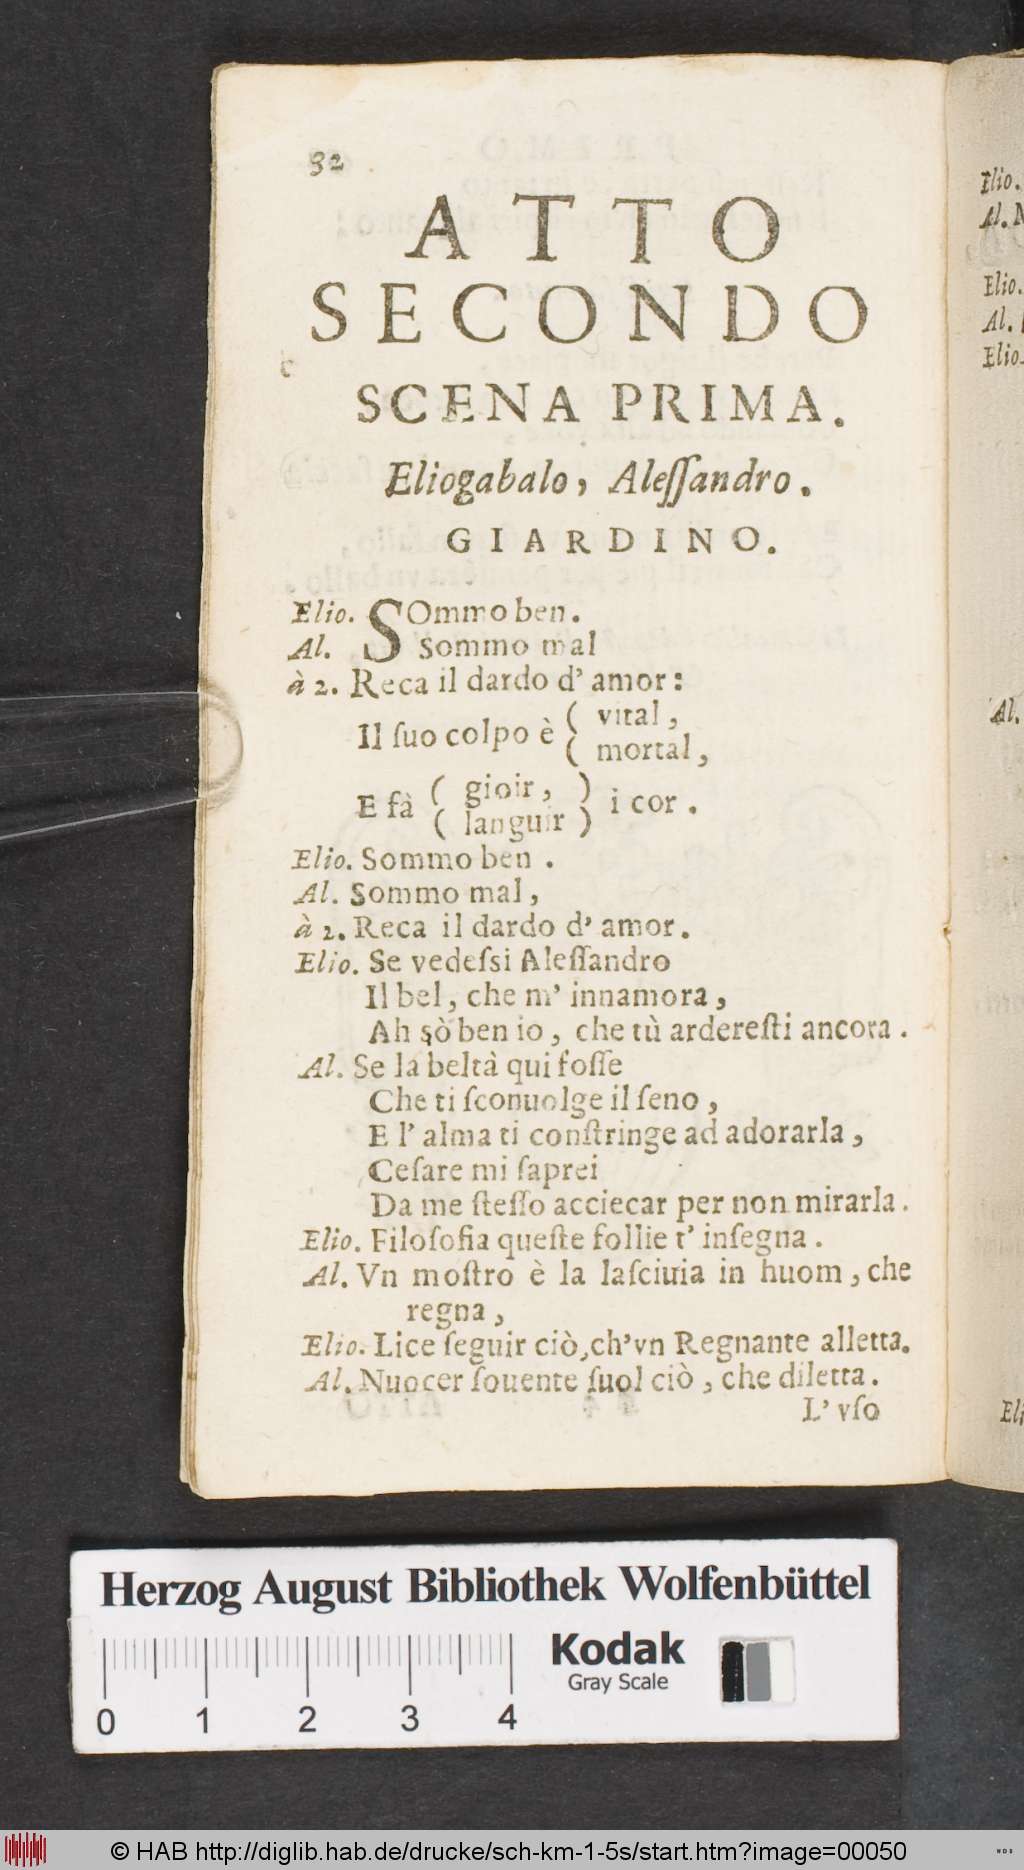 32
ATTO
SECONDO
SCENA PRIMA.
Eliogabalo, Aleſſandro.
GIARDINO.
Elio. SOmmo ben.
Al. Sommo mal
à 2. Reca il dardo d' amor:
Il ſuo colpo è ( vital,
( mortal,
E fà ( gioir, ) i cor.
( languir )
Elio. Sommo ben.
Al. Sommo mal,
à 2. Reca il dardo d' amor.
Elio. Se vedeſsi Aleſſandro
Il bel, che m' innamora,
Ah sò ben io, che tù ardereſti ancora.
Al. Se la beltà qui foſſe
Che ti ſconuolge il ſeno,
E l' alma ti conſtringe ad adorarla,
Ceſare mi ſaprei
Da me ſteſſo acciecar per non mirarla.
Elio. Filoſofia queſte follie t' inſegna.
Al. Vn moſtro è la laſciuia in huom, che
regna,
Elio. Lice ſeguir ciò, ch'vn Regnante alletta.
Al. Nuocer ſouente ſuol ciò, che diletta.
L' vſo
Elio.
Al.
Elio.
Al.
Elio.
Al.
Herzog August Bibliothek Wolfenbüttel
Kodak
Gray Scale
0 1 2 3 4
© HAB http://diglib.hab.de/drucke/sch-km-1-5s/start.htm?image=00050